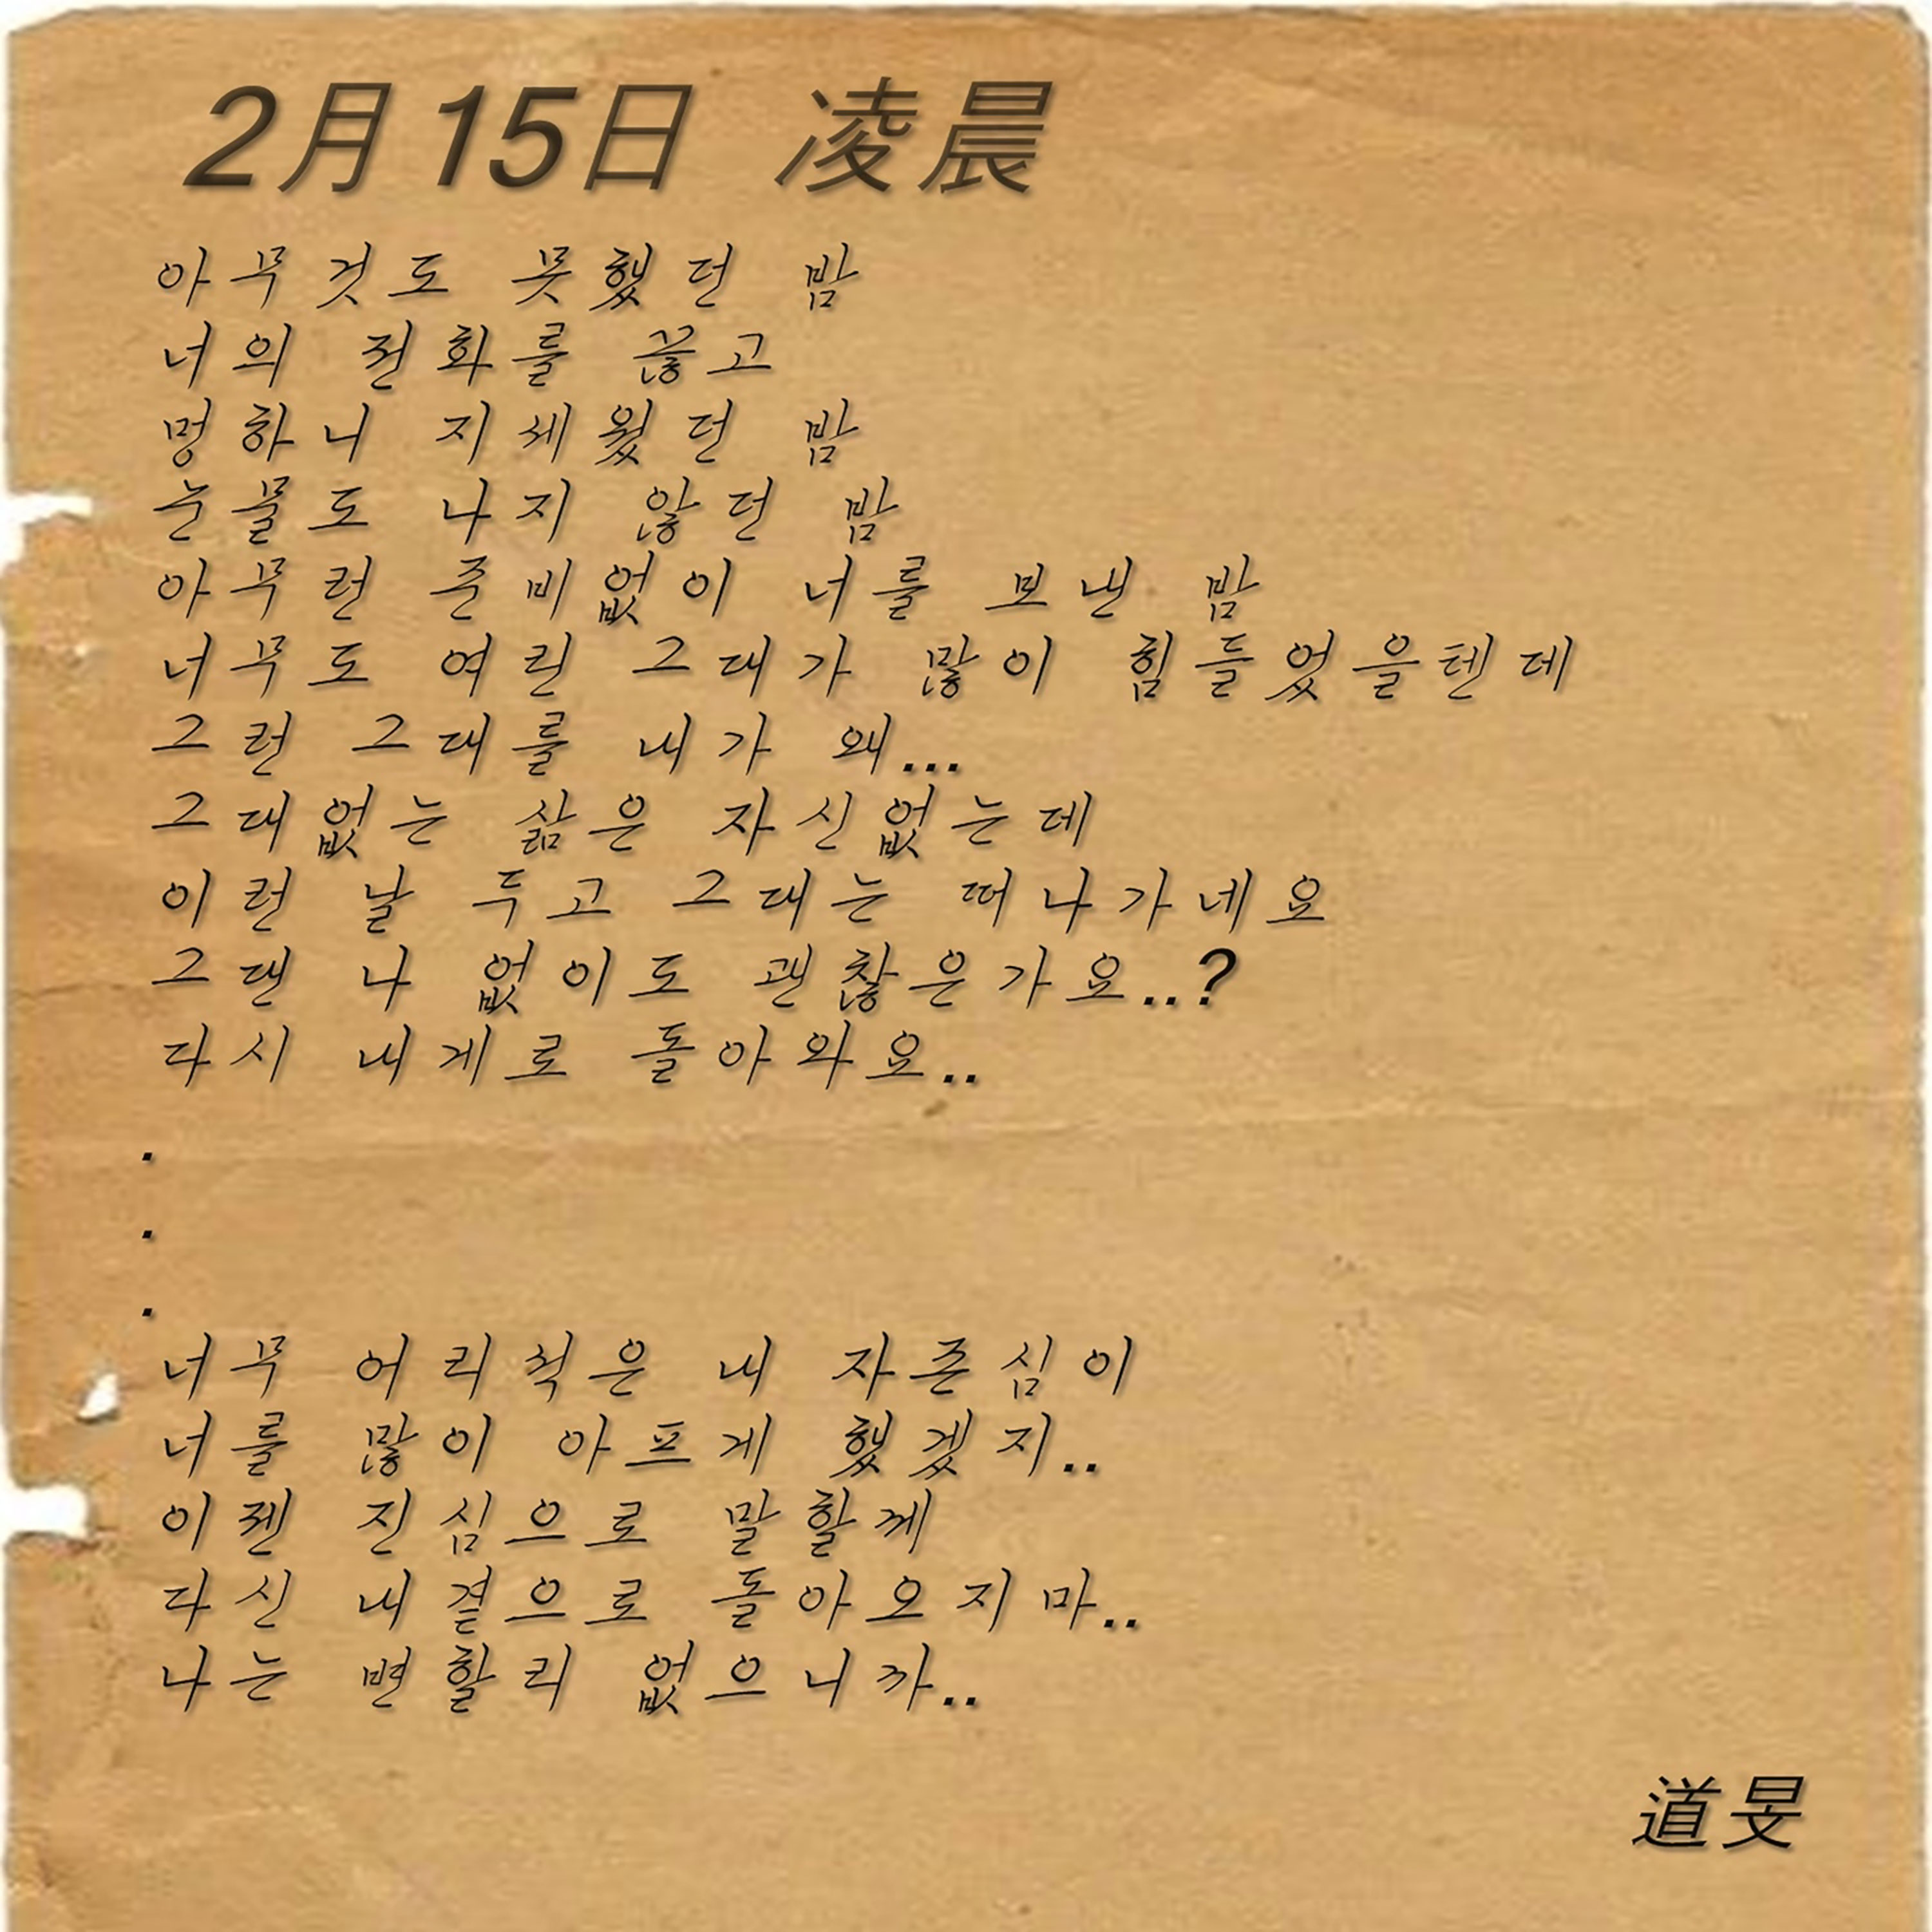 2月15日 凌晨
아무것도 못했던 밤
너의 전화를 끊고
멍하니 지세웠던 밤
눈물도 나지 않던 밤
아무런 준비없이 너를 보낸 밤
너무도 여린 그대가 많이 힘들었을텐데
그런 그대를 내가 왜...
그대없는 삶은 자신없는데
이런 날 두고 그대는 떠나가네요
그댄 나 없이도 괜찮은가요..?
다시 내게로 돌아와요..
.
.
.
너무 어리석은 내 자존심이
너를 많이 아프게 했겠지..
이젠 진심으로 말할께
다신 내곁으로 돌아오지마..
나는 변할리 없으니까..
道旻